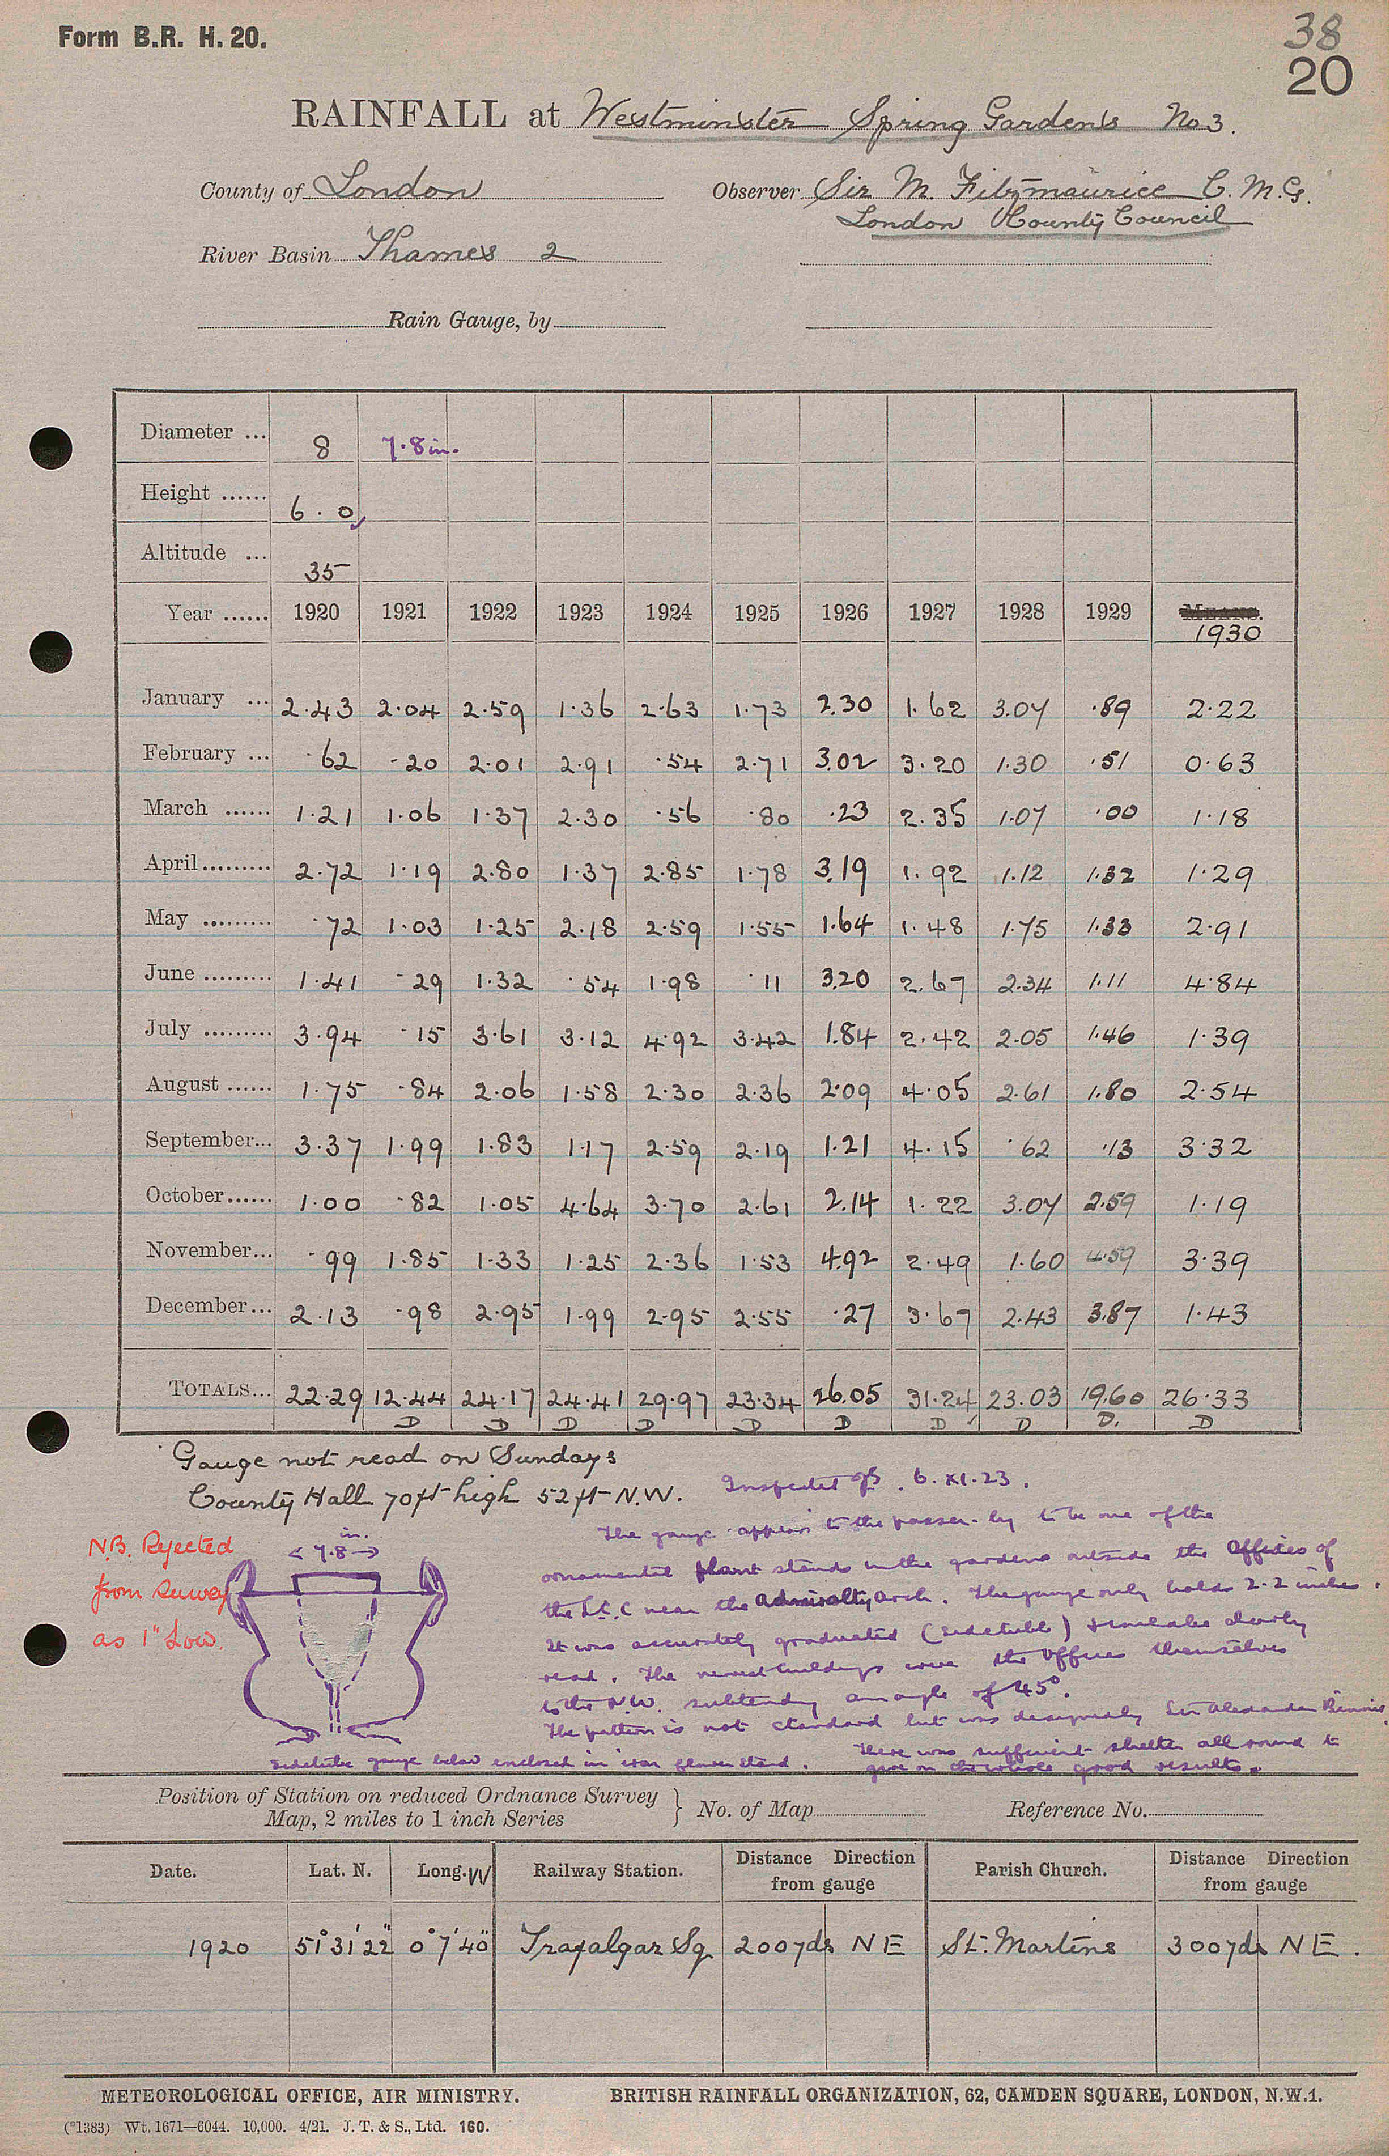 Form B.R. H. 20.
38
20
RAINFALL at Westminster Spring Gardens No 3.
County of London
Observer Sir M. Fitzmaurice C.M.G.
London County Council
River Basin Thames 2
Rain Gauge, by
Diameter ... 8 7.8 in.
Height ...... 6 . 0
Altitude ... 35
Year ...... 1920 1921 1922 1923 1924 1925 1926 1927 1928 1929 MEANS. 1930
January ... 2.43 2.04 2.59 1.36 2.63 1.73 2.30 1.62 3.07 .89 2.22
February ... .62 .20 2.01 2.91 .54 2.71 3.02 3.20 1.30 .51 0.63
March ...... 1.21 1.06 1.37 2.30 .56 .80 .23 2.35 1.07 .00 1.18
April......... 2.72 1.19 2.80 1.37 2.85 1.78 3.19 1.92 1.12 1.32 1.29
May ......... .72 1.03 1.25 2.18 2.59 1.55 1.64 1.48 1.75 1.33 2.91
June ......... 1.41 .29 1.32 .54 1.98 .11 3.20 2.67 2.34 1.11 4.84
July ......... 3.94 .15 3.61 3.12 4.92 3.42 1.84 2.42 2.05 1.46 1.39
August ...... 1.75 .84 2.06 1.58 2.30 2.36 2.09 4.05 2.61 1.80 2.54
September... 3.37 1.99 1.83 1.17 2.59 2.19 1.21 4.15 .62 .13 3.32
October...... 1.00 .82 1.05 4.64 3.70 2.61 2.14 1.22 3.07 2.59 1.19
November... .99 1.85 1.33 1.25 2.36 1.53 4.92 2.49 1.60 4.59 3.39
December... 2.13 .98 2.95 1.99 2.95 2.55 .27 3.67 2.43 3.87 1.43
TOTALS... 22.29 12.44 24.17 24.41 29.97 23.34 26.05 31.24 23.03 19.60 26.33
D D D D D D D D D. D
Gauge not read on Sundays
County Hall 70ft high 52ft N.W.
Inspected 6.XI.23.
N.B. Rejected
from Survey
as 1" Low.
in.
< 7.8 >
The gauge appears to the passer-by to be one of the
ornamental plant stands in the gardens outside the Offices of
the L.C.C near the Admiralty Arch. The gauge only holds 2.2 inches.
It was accurately graduated and clearly
read. The nearest buildings were the Offices themselves
to the N.W. subtending an angle of 45°.
The pattern is not standard but was designed by Sir Alexander Binnie.
There was sufficient shelter all round to
give on the whole good results.
gauge below enclosed in iron flower stand.
Position of Station on reduced Ordnance Survey
Map, 2 miles to 1 inch Series
No. of Map
Reference No.
Date. Lat. N. Long. W Railway Station. Distance Direction from gauge Parish Church. Distance Direction from gauge
1920 51°31'22" 0°7'40" Trafalgar Sq 200yds NE St. Martins 300yds NE.
METEOROLOGICAL OFFICE, AIR MINISTRY.
BRITISH RAINFALL ORGANIZATION, 62, CAMDEN SQUARE, LONDON, N.W.1.
(*1383) Wt. 1671—6044. 10,000. 4/21. J. T. & S., Ltd. 160.